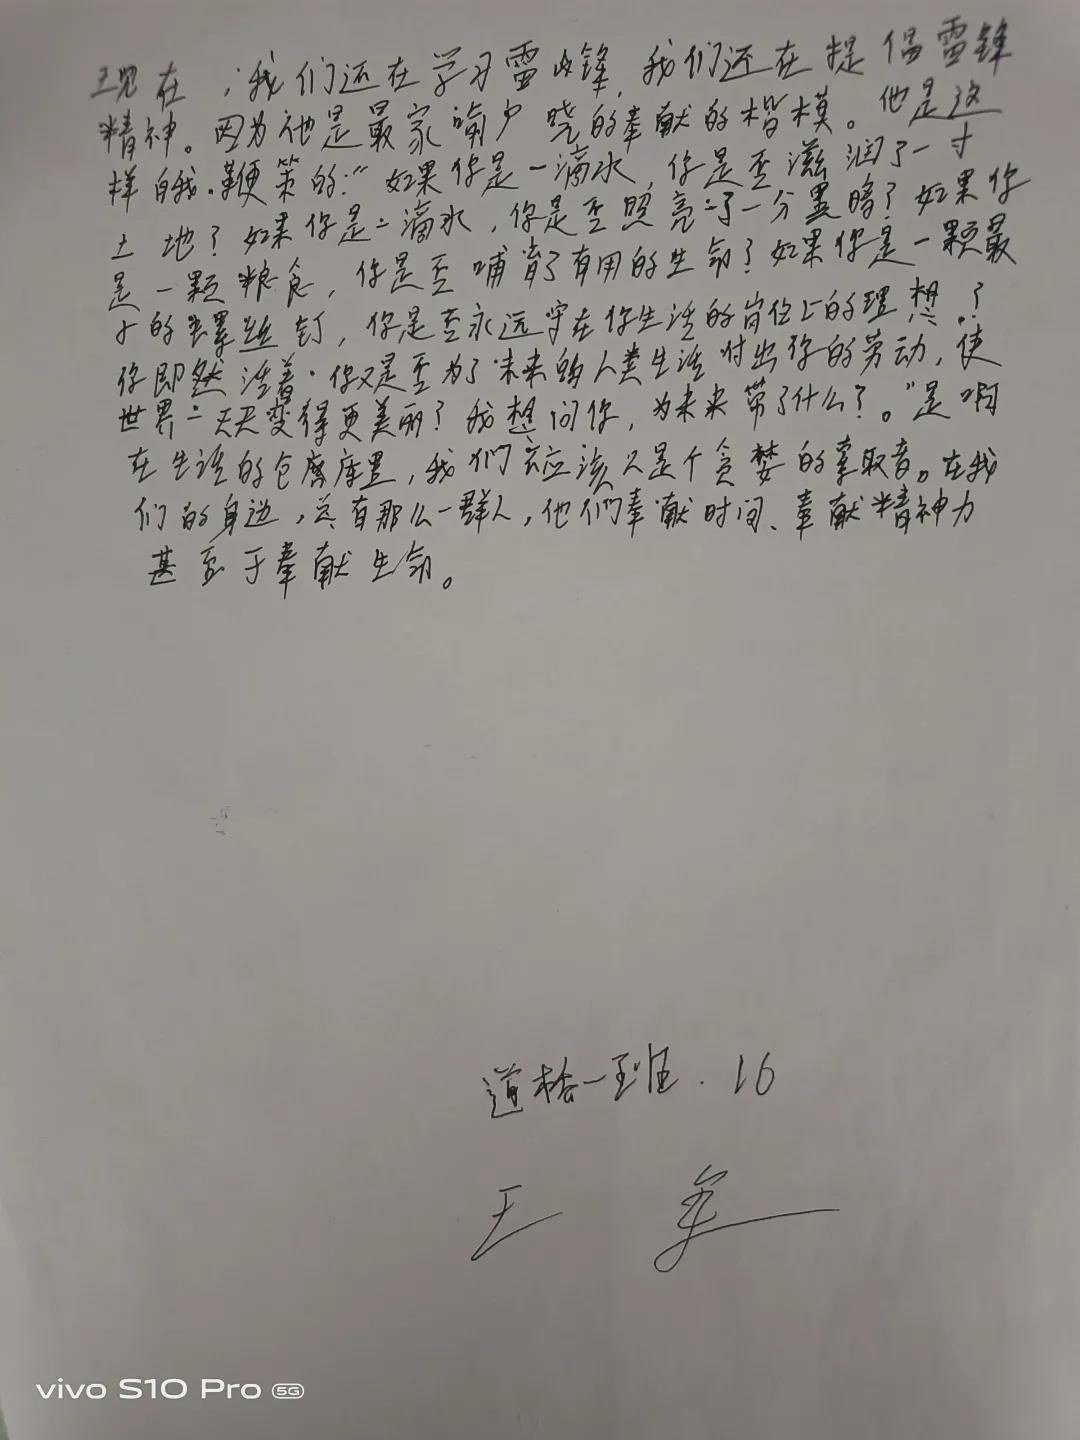 现在,我们还在学习雷峰,我们还在提倡雷锋
精神。因为他是最家喻户晓的奉献的楷模。他是这
样自我·鞭策的:“如果你是一滴水,你是否滋润了一寸
土地?如果你是一滴水,你是否照亮了一分黑暗?如果你
是一颗粮食,你是否哺育了有用的生命?如果你是一颗最
小的螺丝钉,你是否永远守在你生活的岗位上的理想?
你即然活着·你又是否为了未来的人类生活付出你的劳动,使
世界一天天变得更美丽?我想问你,为未来带了什么?。”是啊
在生活的仓库里,我们应该只是个贪婪的拿取者。在我
们的身边,总有那么一群人,他们奉献时间、奉献精神力
甚至于奉献生命。
道桥一班.16
王
vivo S10 Pro 5G